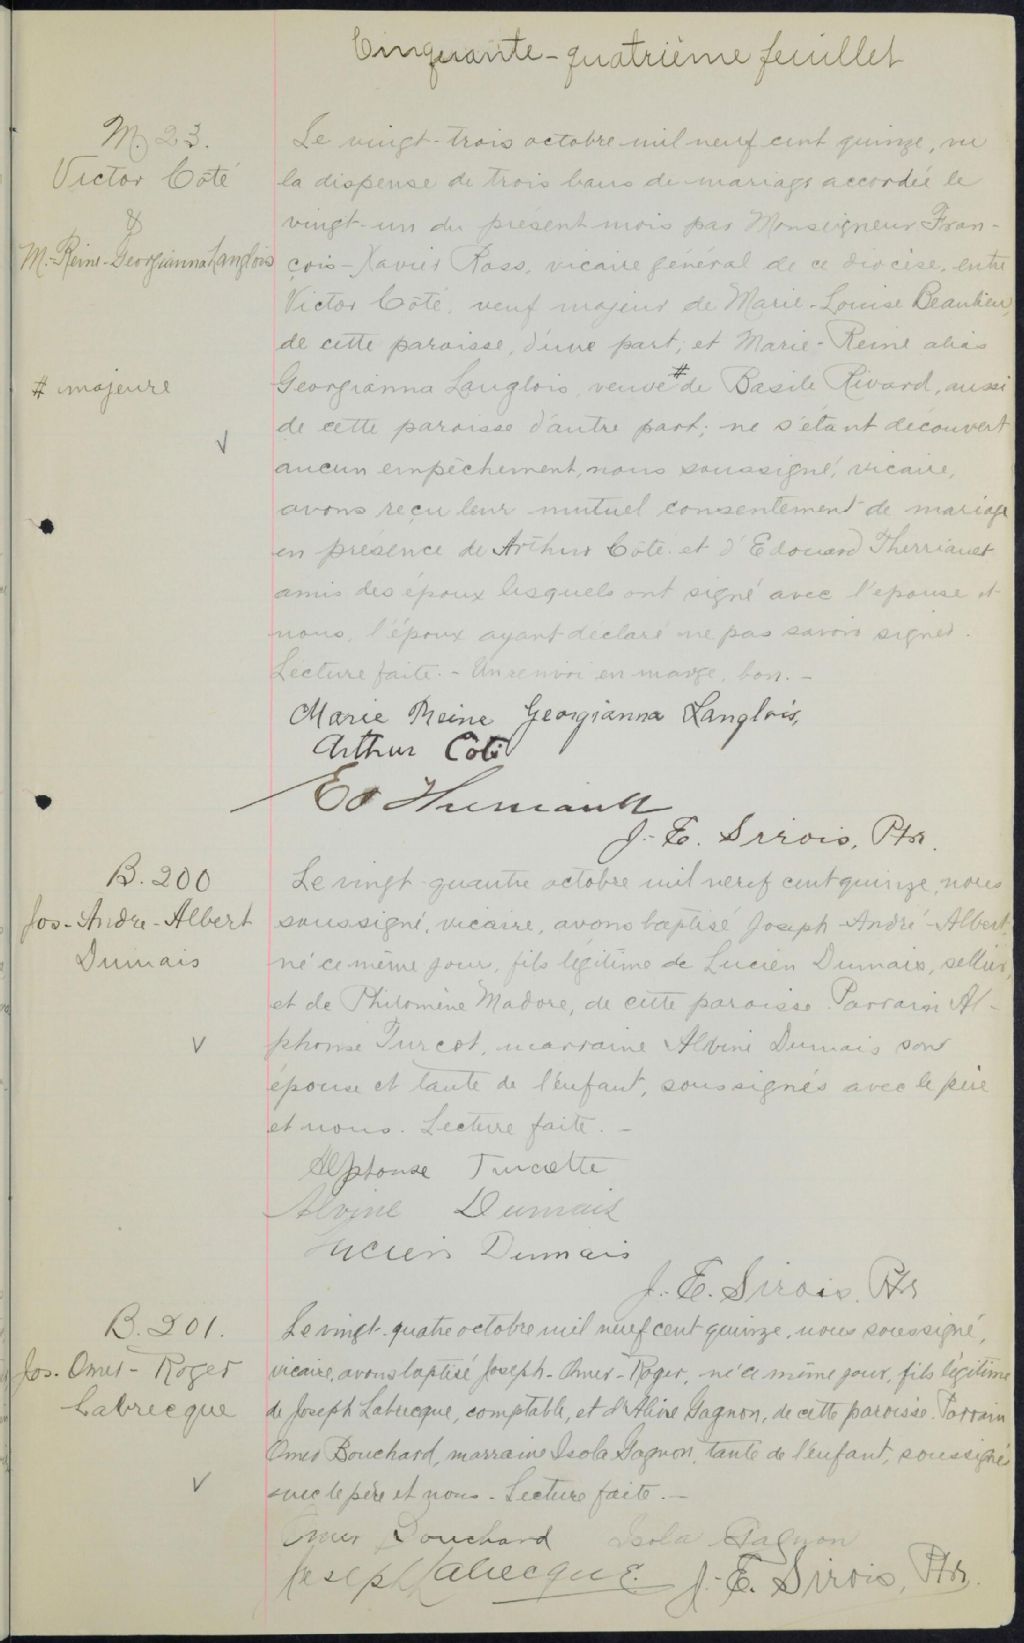 Cinquante-quatrième feuillet
M. 23.
Victor Côté
&
M.-Reine-Georgianna Langlois
# majeure
Le vingt-trois octobre mil neuf cent quinze, vu
la dispense de trois bans de mariage accordée le
vingt-un du présent mois par Monseigneur Fran-
çois-Xavier Ross, vicaire général de ce diocèse, entre
Victor Côté, veuf majeur de Marie-Louise Beaulieu,
de cette paroisse, d'une part; et Marie-Reine alias
Georgianna Langlois, veuve # de Basile Rivard, aussi
de cette paroisse d'autre part; ne s'étant découvert
aucun empêchement, nous soussigné, vicaire,
avons reçu leur mutuel consentement de mariage
en présence de Arthur Côté et d'Edouard Therriault
amis des époux lesquels ont signé avec l'épouse et
nous, l'époux ayant déclaré ne pas savoir signer.
Lecture faite. - Un renvoi en marge, bon. -
Marie Reine Georgianna Langlois,
Arthur Coté
Ed Therriault
J.-E. Sirois, Ptr.
B. 200
Jos-André-Albert
Dumais
Le vingt-quautre octobre mil neuf cent quinze, nous
soussigné, vicaire, avons baptisé Joseph-André-Albert,
né ce même jour, fils légitime de Lucien Dumais, sellier,
et de Philomène Madore, de cette paroisse. Parrain Al-
phonse Turcot, marraine Alvine Dumais son
épouse et tante de l'enfant, soussignés avec le père
et nous. Lecture faite. -
Alphonse Turcotte
Alvine Dumais
Lucien Dumais
J.-E. Sirois, Ptr
B. 201.
Jos. Omer-Roger
Labrecque
Le vingt-quatre octobre mil neuf cent quinze, nous soussigné,
vicaire, avons baptisé Joseph-Omer-Roger, né ce même jour, fils légitime
de Joseph Labrecque, comptable, et d'Aline Gagnon, de cette paroisse. Parrain
Omer Bouchard, marraine Isola Gagnon, tante de l'enfant, soussignés
avec le père et nous. Lecture faite. -
Omer Bouchard Isola Gagnon
Joseph Labrecque. J.-E. Sirois, Ptr.